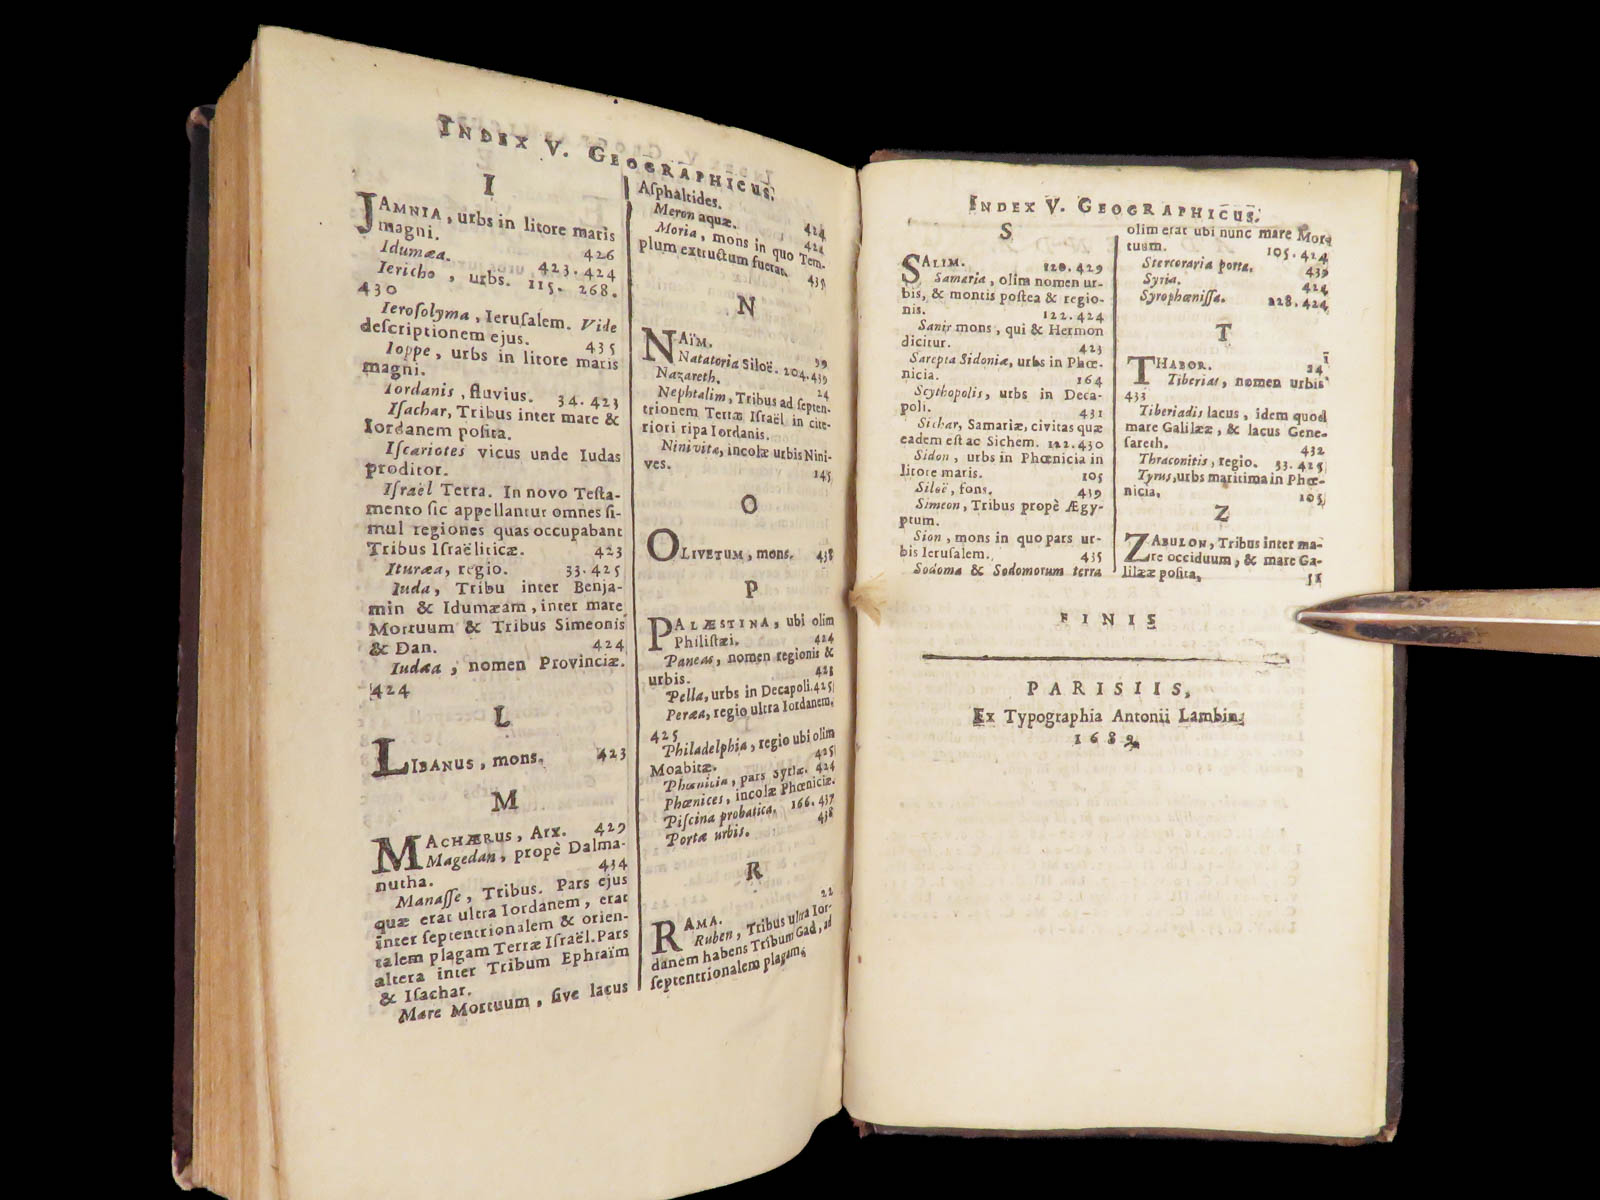 INDEX V. GEOGRAPHICUS.
I
JAMNIA, urbs in litore maris
magni. 426
Idumæa. 423. 424
Iericho, urbs. 115. 268.
430
Ierosolyma, Ierusalem. Vide
descriptionem ejus. 435
Ioppe, urbs in litore maris
magni.
Iordanis, fluvius. 34. 423
Isachar, Tribus inter mare &
Iordanem posita.
Iscariotes vicus unde Iudas
proditor.
Israël Terra. In novo Testa-
mento sic appellantur omnes si-
mul regiones quas occupabant
Tribus Israëliticæ. 423
Ituræa, regio. 33. 425
Iuda, Tribu inter Benja-
min & Idumæam, inter mare
Mortuum & Tribus Simeonis
& Dan. 424
Iudæa, nomen Provinciæ.
424
L
LIBANUS, mons. 423
M
MACHÆRUS, Arx. 429
Magedan, propè Dalma-
nutha. 434
Manasse, Tribus. Pars ejus
quæ erat ultra Iordanem, erat
inter septentrionalem & orien-
talem plagam Terræ Israël. Pars
altera inter Tribum Ephraïm
& Isachar.
Mare Mortuum, sive lacus
Asphaltides. 424
Meron aquæ. 424
Moria, mons in quo Tem-
plum extructum fuerat. 439
N
NAÏM. 99
Natatoria Siloë. 204. 439
Nazareth. 24
Nephtalim, Tribus ad septen-
trionem Terræ Israël in cite-
riori ripa Iordanis.
Ninivitæ, incolæ urbis Nini-
ves. 145
O
OLIVETUM, mons. 438
P
PALÆSTINA, ubi olim
Philistæi. 424
Paneas, nomen regionis &
urbis. 428
Pella, urbs in Decapoli. 425
Peræa, regio ultra Iordanem.
425
Philadelphia, regio ubi olim
Moabitæ. 425
Phœnicia, pars Syriæ. 424
Phœnices, incolæ Phœniciæ.
Piscina probatica. 166. 437
Portæ urbis. 438
R
RAMA. 22
Ruben, Tribus ultra Ior-
danem habens Tribum Gad, ad
septentrionalem plagam.
INDEX V. GEOGRAPHICUS.
S
SALIM. 120. 429
Samaria, olim nomen ur-
bis, & montis postea & regio-
nis. 122. 424
Sanir mons, qui & Hermon
dicitur. 423
Sarepta Sidoniæ, urbs in Phœ-
nicia. 164
Scythopolis, urbs in Deca-
poli. 431
Sichar, Samariæ, civitas quæ
eadem est ac Sichem. 122. 430
Sidon, urbs in Phœnicia in
litore maris. 105
Siloë, fons. 439
Simeon, Tribus propè Ægy-
ptum.
Sion, mons in quo pars ur-
bis Ierusalem. 435
Sodoma & Sodomorum terra
olim erat ubi nunc mare Mor-
tuum. 105. 424
Stercoraria porta. 439
Syria. 424
Syrophœnissa. 228. 424
T
THABOR. 24
Tiberias, nomen urbis
433
Tiberiadis lacus, idem quod
mare Galilææ, & lacus Gene-
sareth. 432
Thraconitis, regio. 33. 425
Tyrus, urbs maritima in Phœ-
nicia. 105
Z
ZABULON, Tribus inter ma-
re occiduum, & mare Ga-
lilææ posita,
FINIS
PARISIIS,
Ex Typographia Antonii Lambin,
1689.